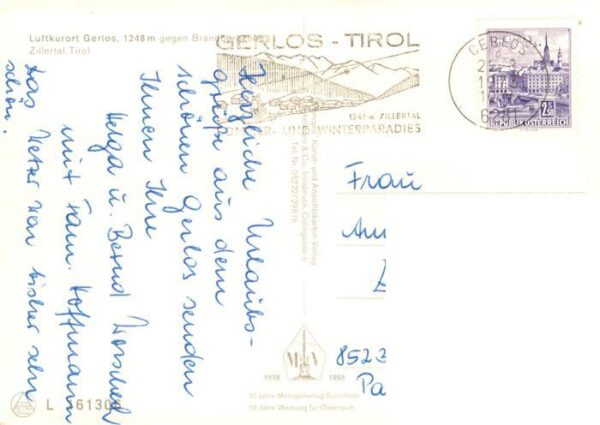 Luftkurort Gerlos, 1248 m gegen
Zillertal, Tirol
GERLOS - TIROL
1246 m ZILLERTAL
UND WINTERPARADIES
GERLOS
REPUBLIK ÖSTERREICH
Herzliche Urlaubs-
grüße aus dem
schönen Gerlos senden
Ihnen Ihre
Helga u. Bernd
mit Fam. Hoffmann
Das Wetter war bisher sehr
schön.
Kunst- und Ansichtskarten-Verlag
& Co. Innsbruck,
Tel. Nr. 05222/29816
Frau
8523
Pa
1918 1968
50 Jahre Monopolverlag
50 Jahre Werbung für Österreich
L 61306